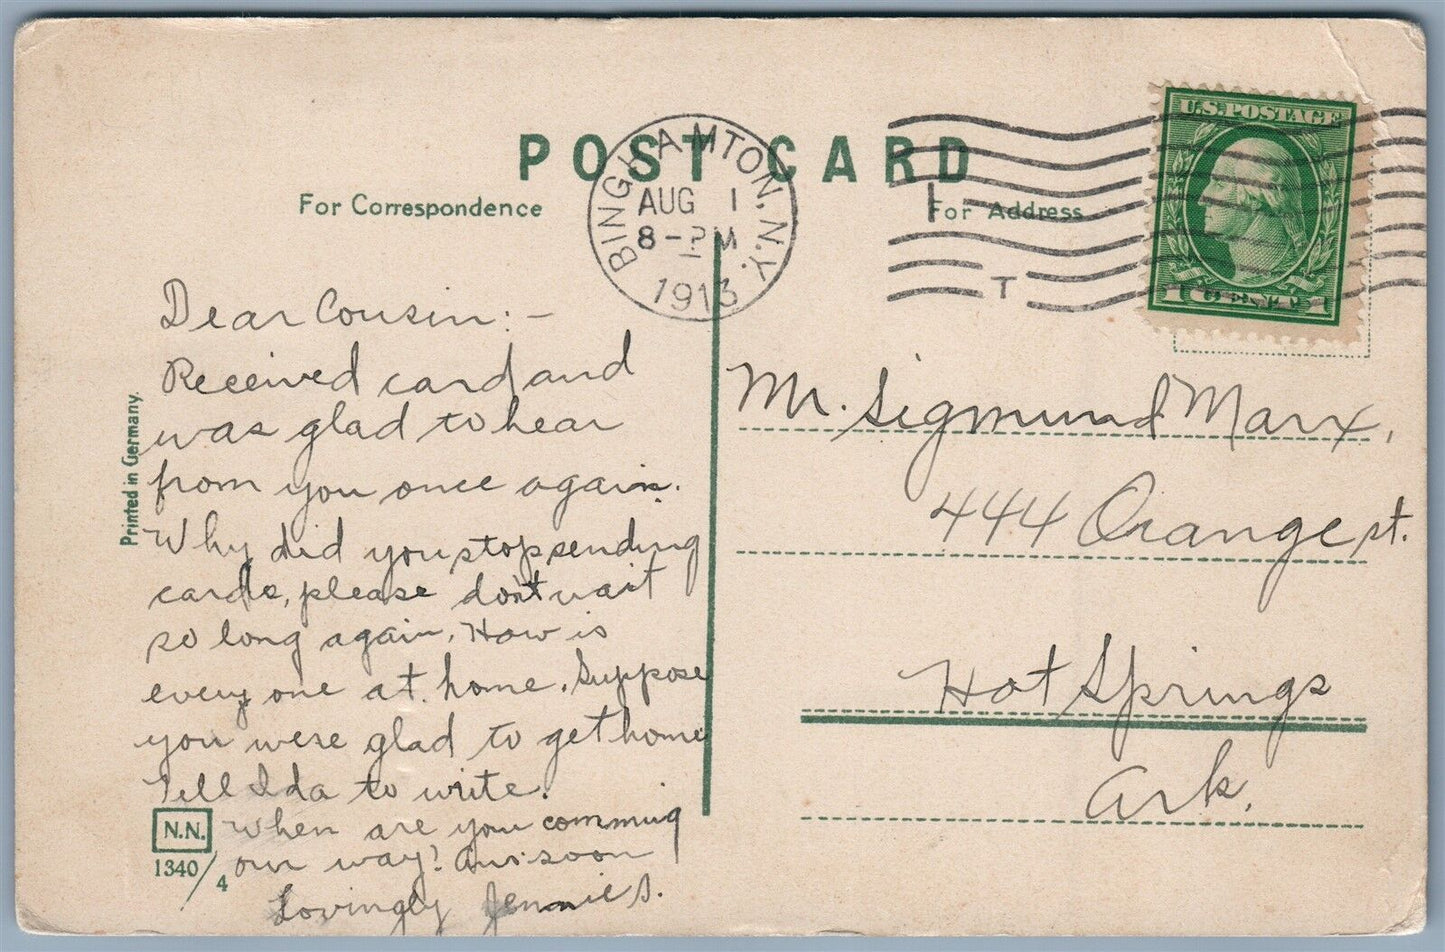 POST CARD
For Correspondence
For Address
BINGHAMTON, N.Y.
AUG 1
8-PM
1913
T
U.S. POSTAGE
1 CENT 1
Printed in Germany.
Dear Cousin:-
Received card and
was glad to hear
from you once again.
Why did you stop sending
cards, please don't wait
so long again. How is
every one at home. Suppose
you were glad to get home
Tell Ida to write.
When are you comming
our way? Ans. soon
Lovingly Jennie S.
N.N.
1340/4
Mr. Sigmund Marx,
444 Orange st.
Hot Springs
Ark.